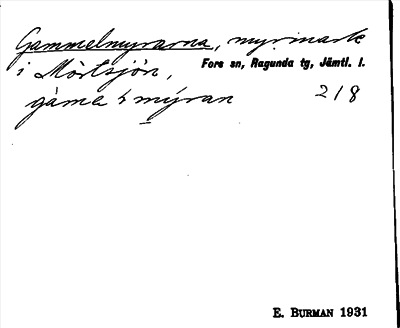 Gammelmyrarna, myrmark
i Mörtsjön, Fors sn, Ragunda tg, Jämtl. l.
gàmelmýran 218
E. BURMAN 1931